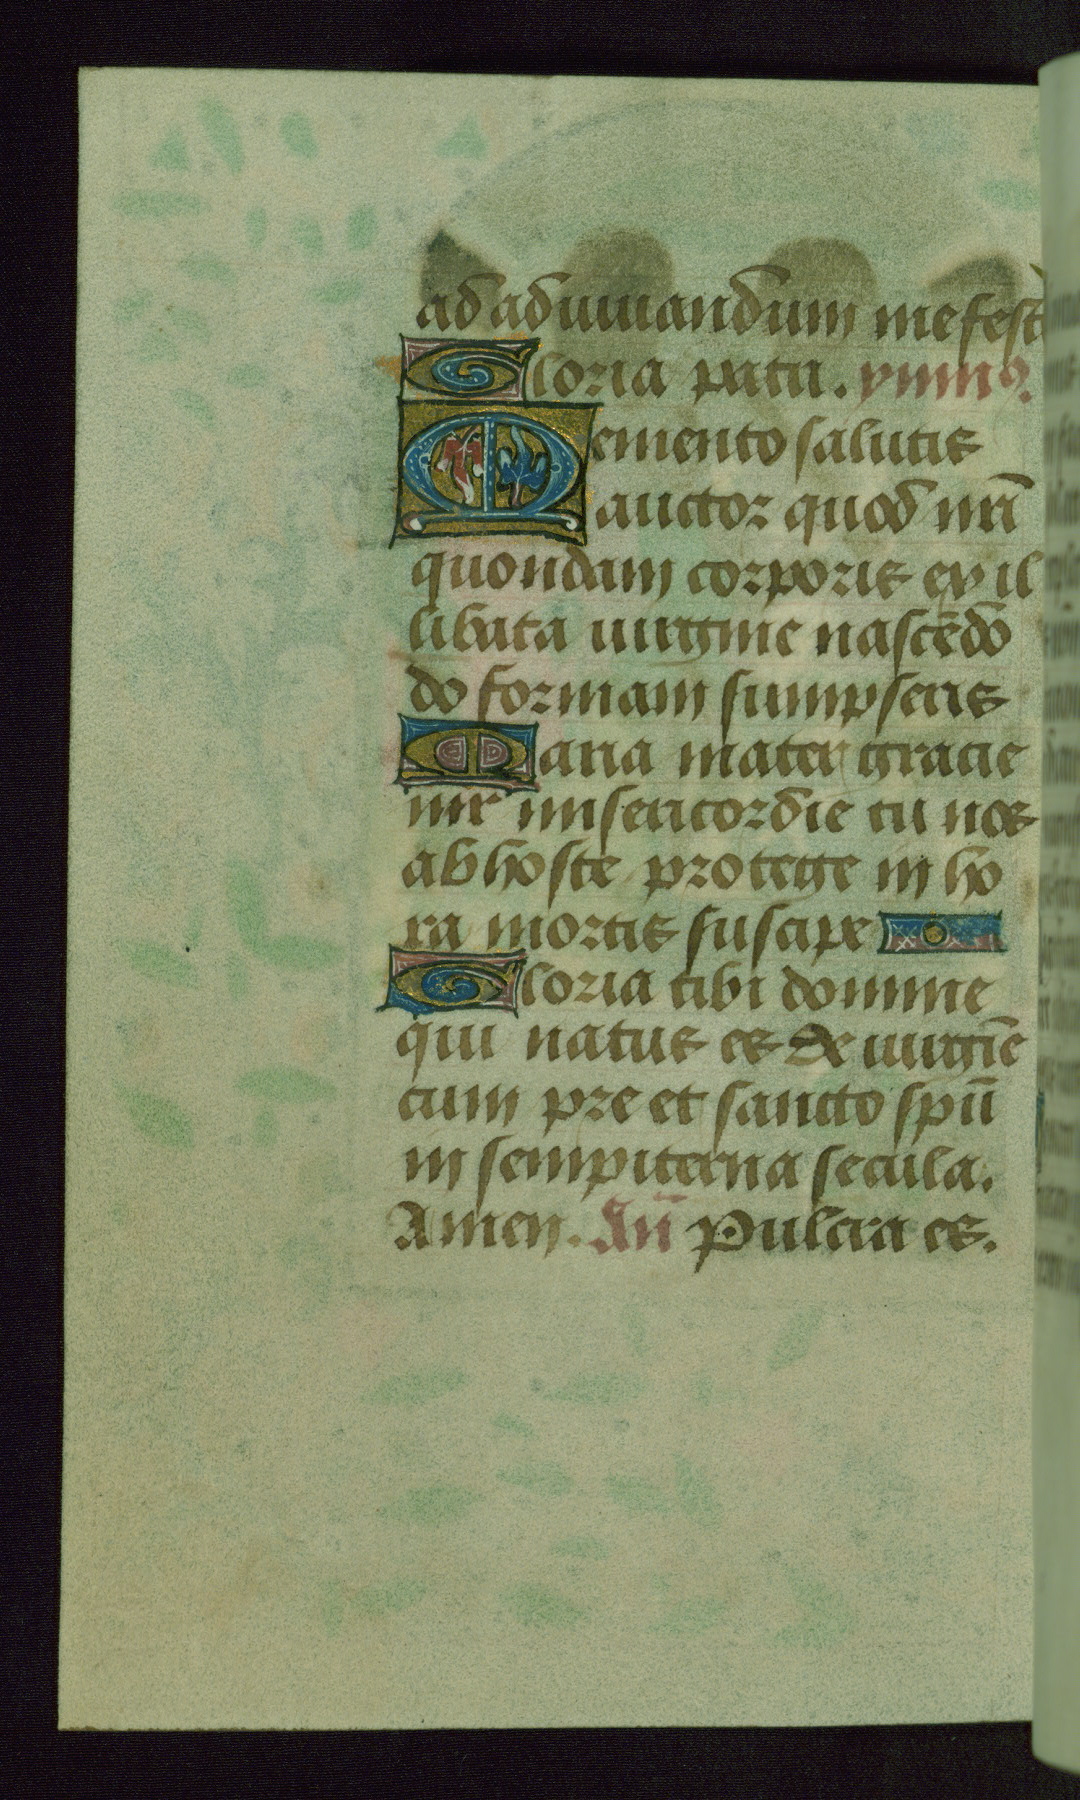 ad adiuuandum me fest
Gloria patri. ymn⁹.
Memento salutis
auctor quod nr̄i
quondam corporis ex il
libata uirgine nascēdo
do formam sumpseris
Maria mater gracie
mr misericordie tu nos
ab hoste protege in ho
ra mortis suscipe
Gloria tibi domine
qui natus es de uirgīe
cum pre et sancto spū
in sempiterna secula.
Amen. An̄ Pulcra es.